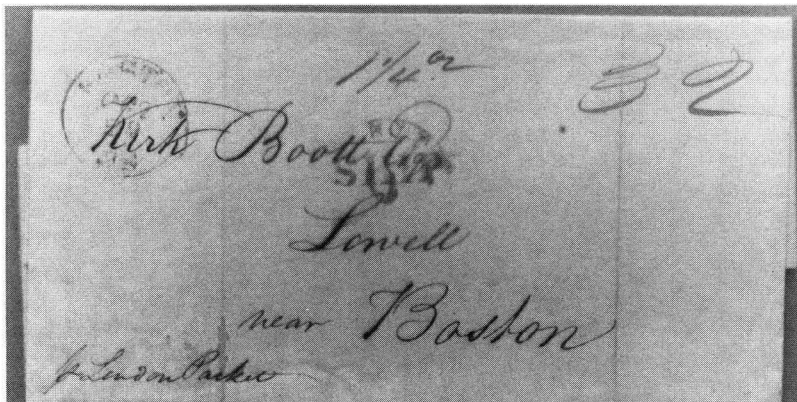 1 1/4 oz
32
Kirk Boott Esqr
SHIP
Lowell
near Boston
pr London Packet